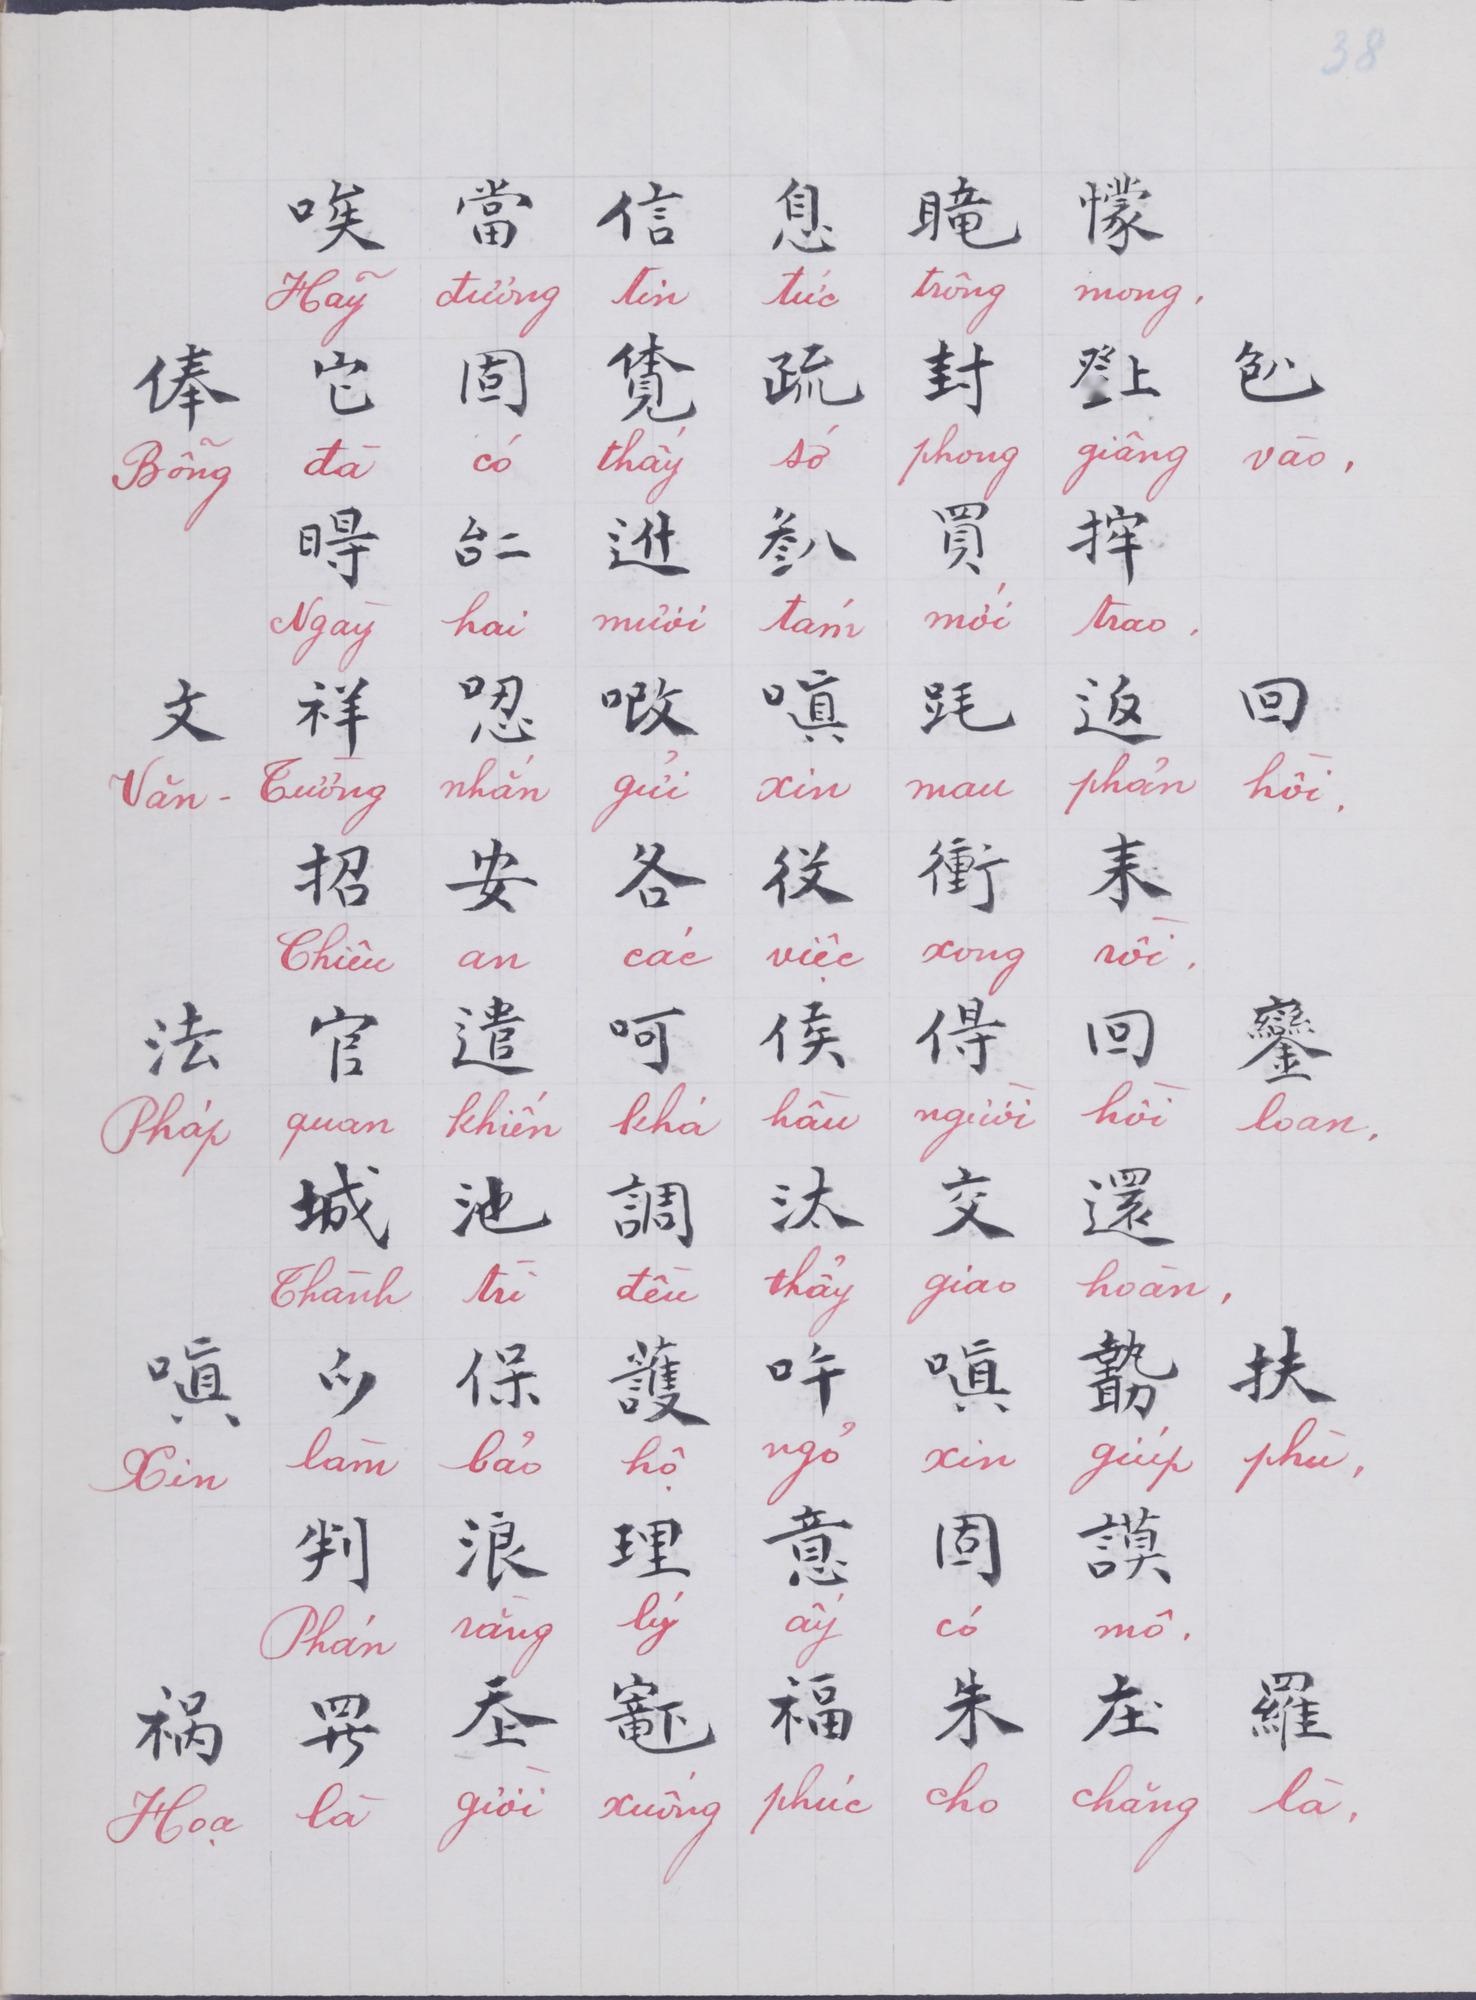 38
唉 當 信 息 𥊣 懞
Hãy đương tin tức trông mong.
俸 它 固 覓 疏 封 𤼸 包
Bỗng đà có thấy sớ phong giâng vào,
㝵 𠄩 𨑮 𠔭 買 㨋
Ngày hai mươi tám mới trao.
文 祥 㗴 㗂 嗔 𣭻 返 回
Văn-Tường nhắn gửi xin mau phản hồi.
招 安 各 役 衝 耒
Chiêu an các việc xong rồi.
法 官 遣 呵 侯 㝵 回 鑾
Pháp quan khiến khá hầu người hồi loan.
城 池 調 汰 交 還
Thành trì đều thảy giao hoàn,
嗔 𫜵 保 護 吘 嗔 𠢞 扶
Xin làm bảo hộ ngỏ xin giúp phù,
判 浪 理 意 固 謨
Phán rằng lý ấy có mô.
禍 𱺵 𡗶 𡬈 福 朱 庄 羅
Hoạ là giời xuống phúc cho chăng là,